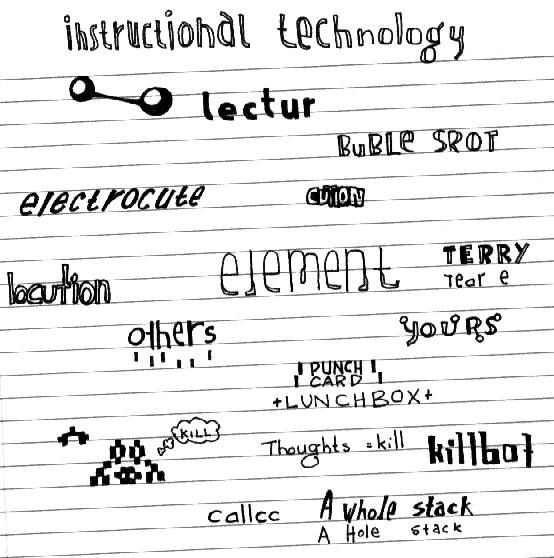 instructional technology
lectur
BuBLe SPOT
electrocute cution
element TERRY
locution rear e
others yours
PUNCH
CARD
+LUNCHBOX+
KILL
Thoughts =kill killbot
callcc A whole stack
A Hole stack